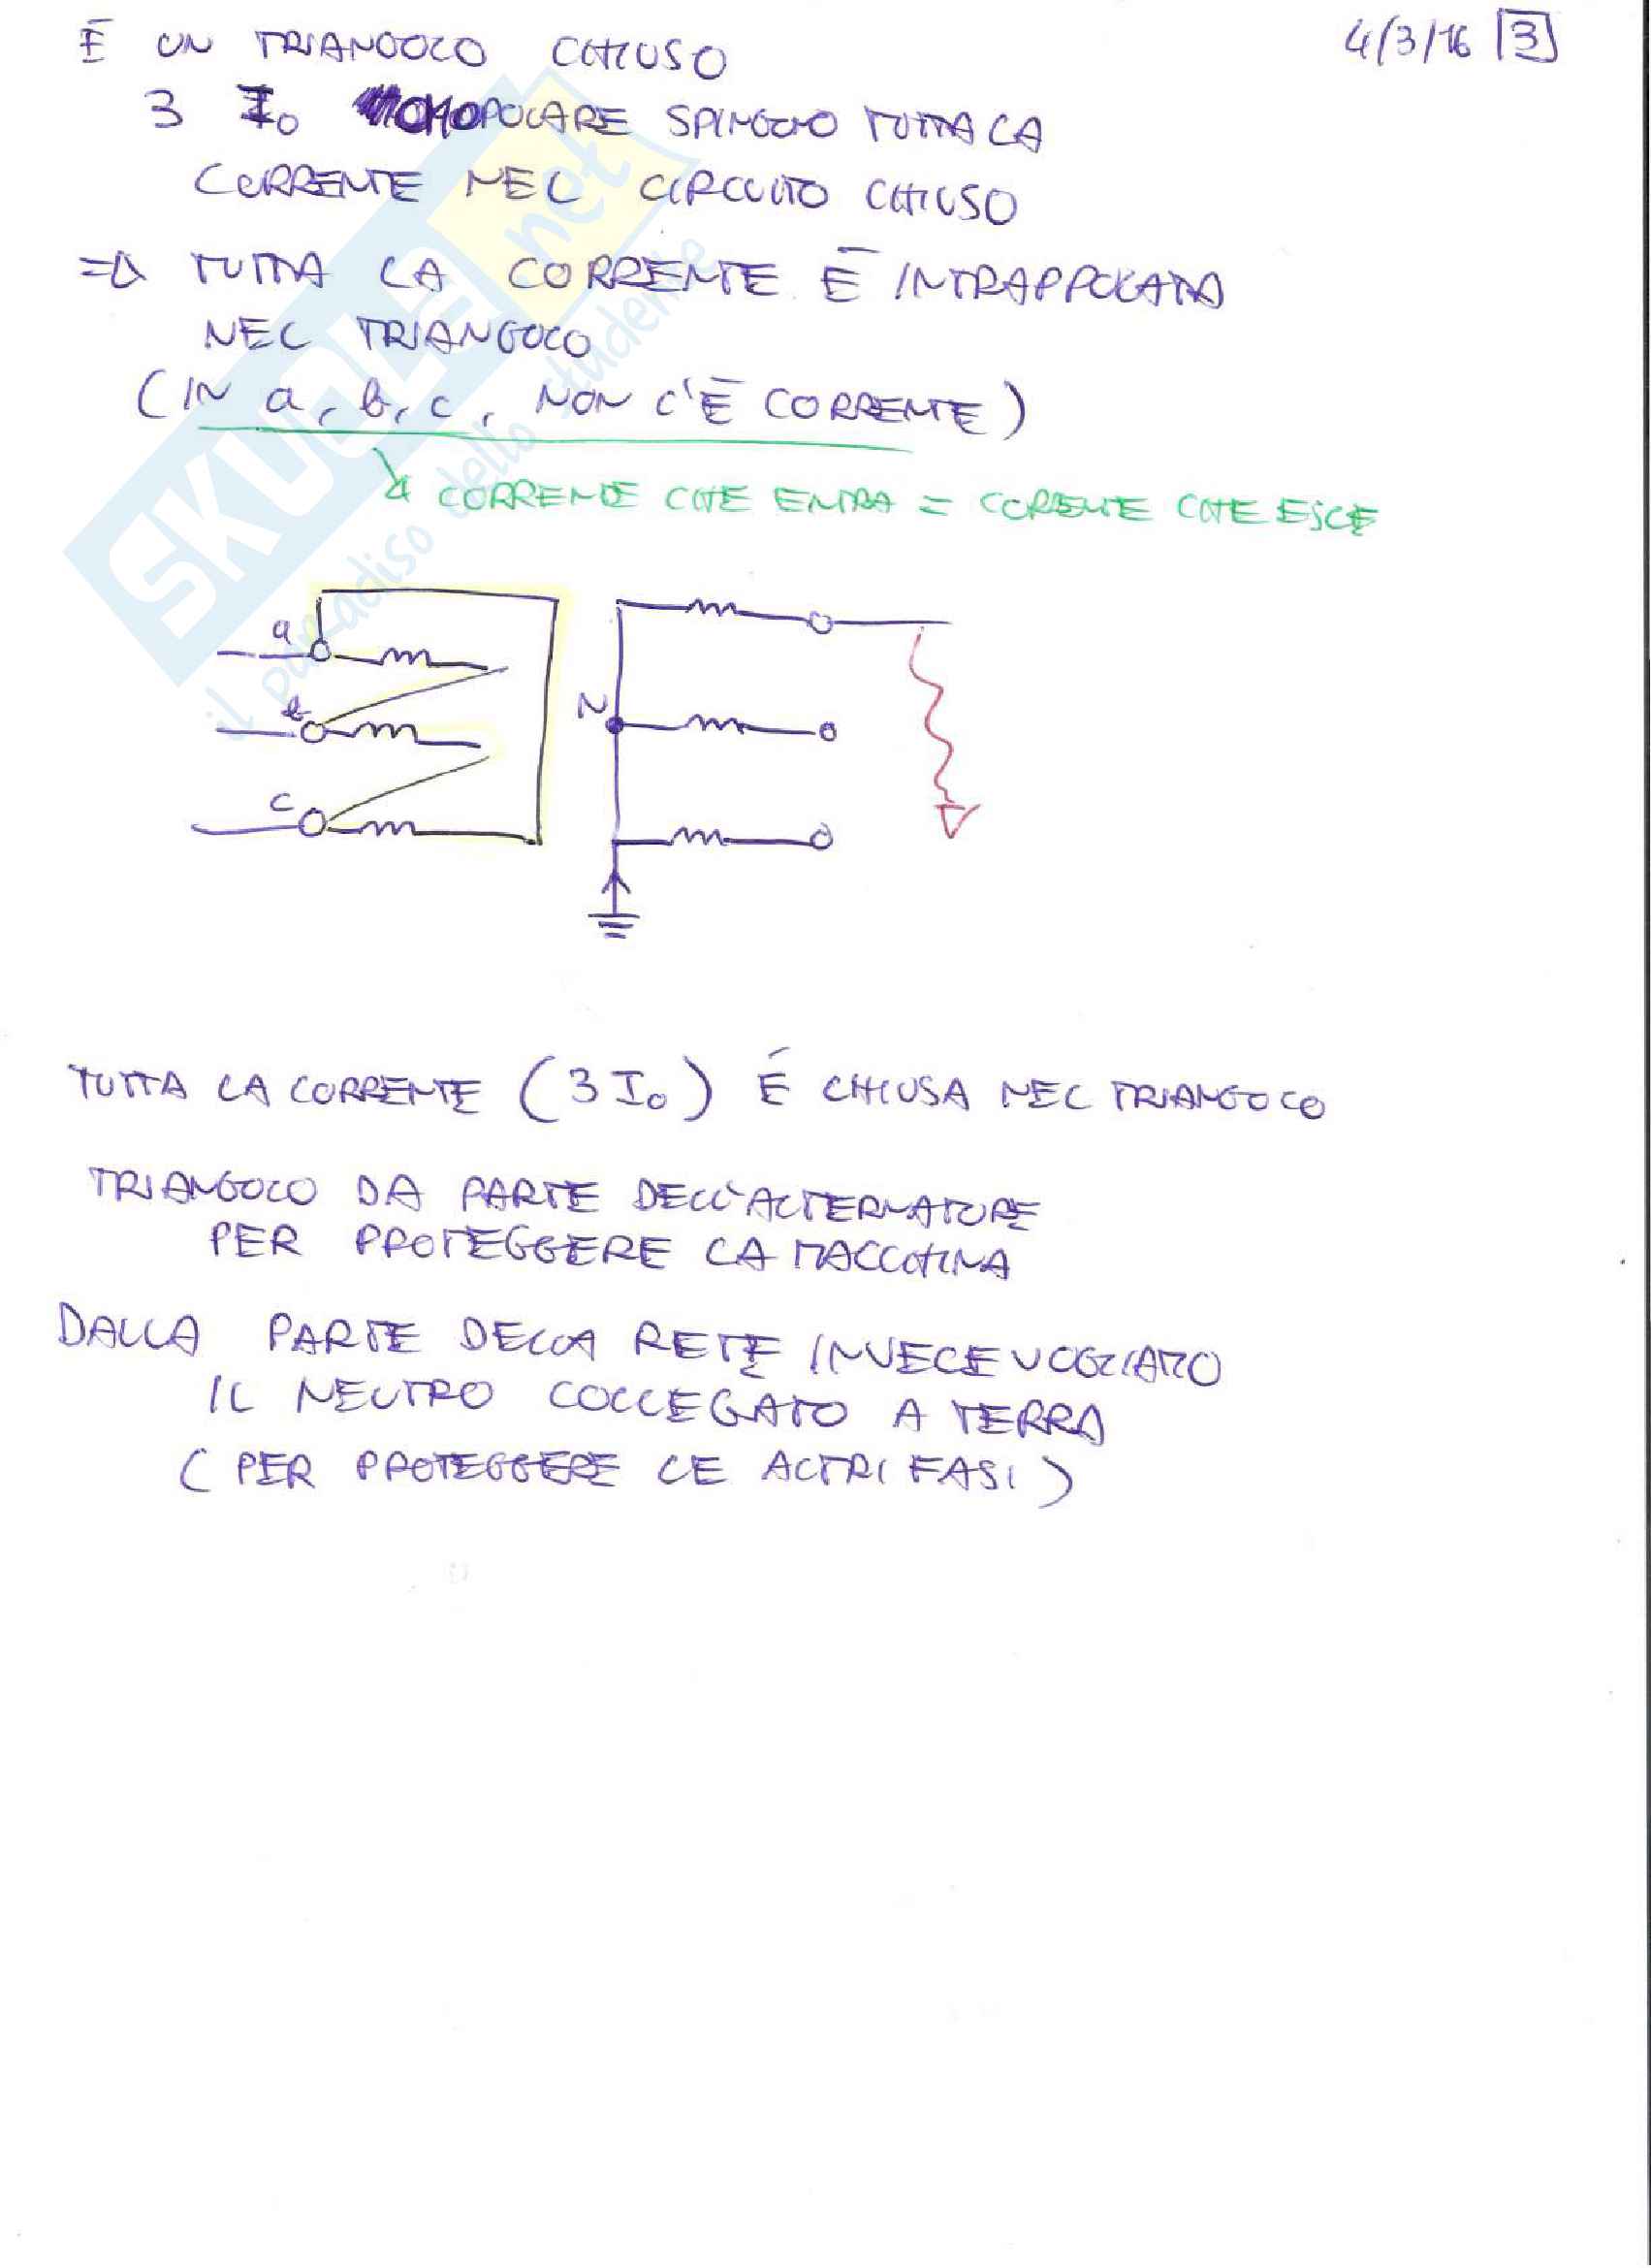 4/3/16 3
È UN TRIANGOLO CHIUSO
3 I₀ OMOPOLARE SPINGONO TUTTA LA
CORRENTE NEL CIRCUITO CHIUSO
=> TUTTA LA CORRENTE È INTRAPPOLATA
NEL TRIANGOLO
(IN a, b, c, NON C'È CORRENTE)
CORRENTE CHE ENTRA = CORRENTE CHE ESCE
a
b
c
N
TUTTA LA CORRENTE (3 I₀) È CHIUSA NEL TRIANGOLO
TRIANGOLO DA PARTE DELL'ALTERNATORE
PER PROTEGGERE LA MACCHINA
DALLA PARTE DELLA RETE INVECE VOGLIAMO
IL NEUTRO COLLEGATO A TERRA
(PER PROTEGGERE LE ALTRI FASI)
SKUOLA.net
il paradiso dello studente